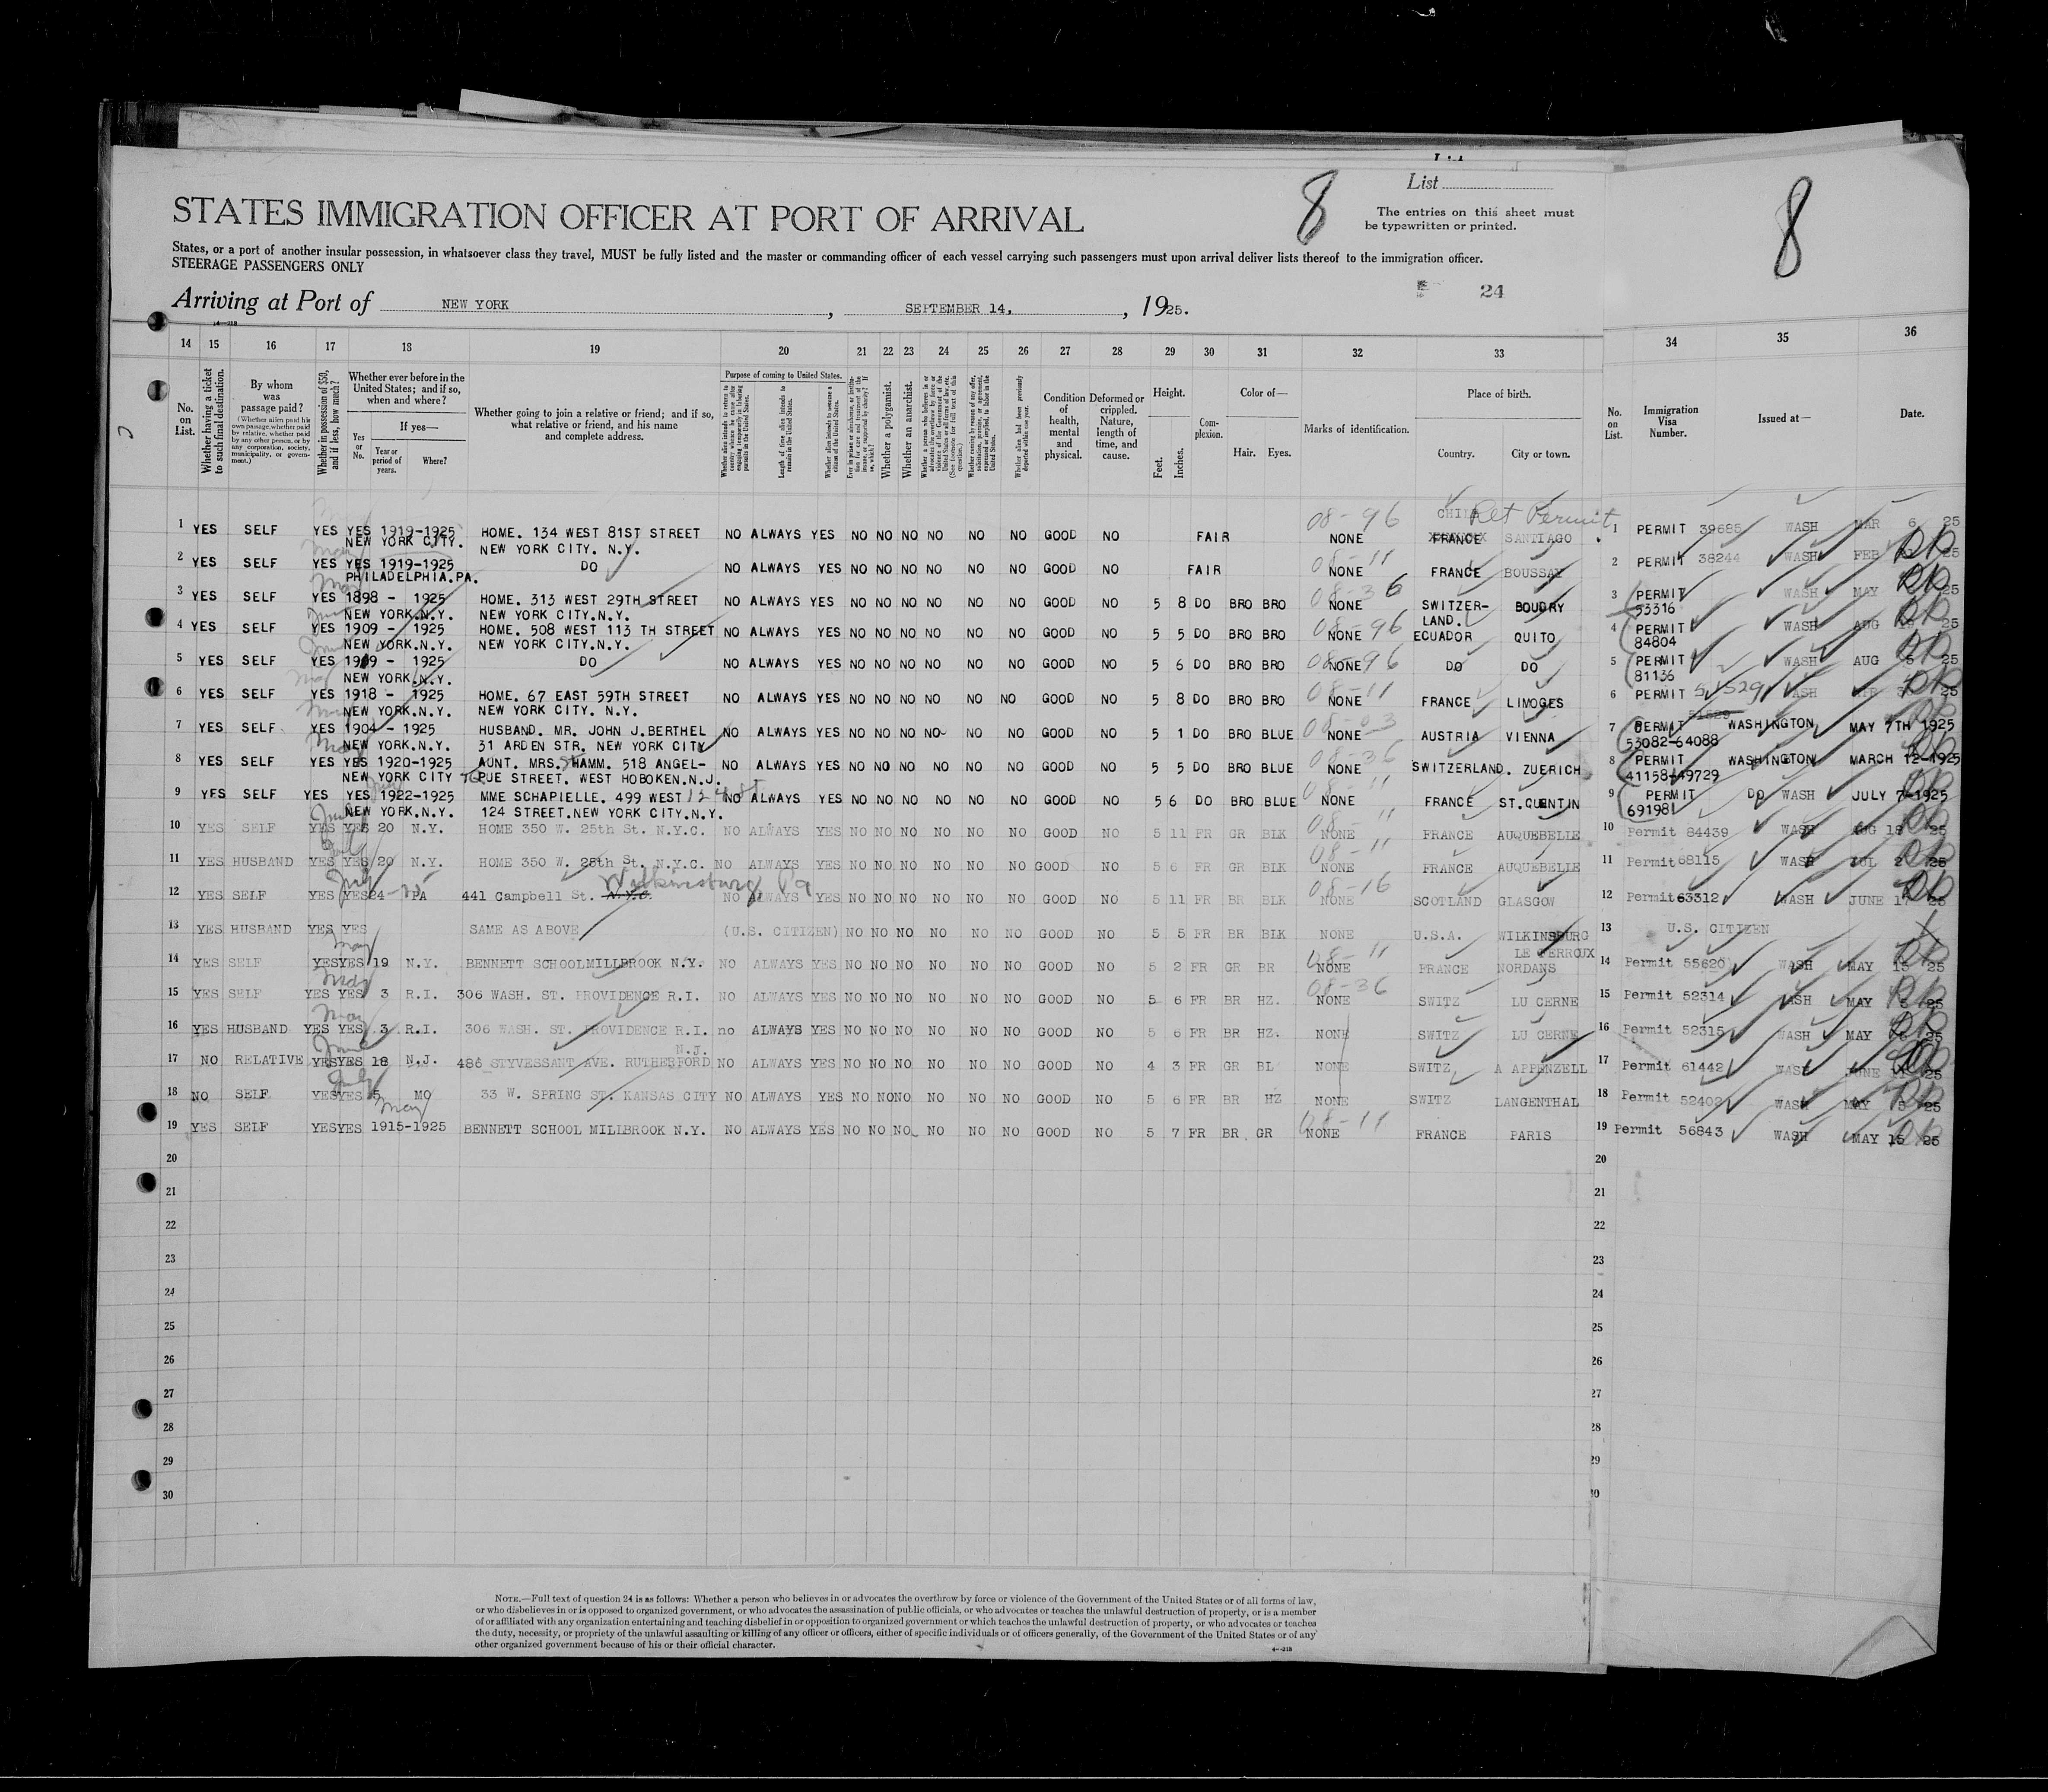 List
8
8
STATES IMMIGRATION OFFICER AT PORT OF ARRIVAL
The entries on this sheet must
be typewritten or printed.
States, or a port of another insular possession, in whatsoever class they travel, MUST be fully listed and the master or commanding officer of each vessel carrying such passengers must upon arrival deliver lists thereof to the immigration officer.
STEERAGE PASSENGERS ONLY
24
Arriving at Port of NEW YORK, SEPTEMBER 14, 1925.
14 15 16 17 18 19 20 21 22 23 24 25 26 27 28 29 30 31 32 33 34 35 36
No. on List.
Whether having a ticket to such final destination.
By whom was passage paid?
(Whether alien paid his own passage, whether paid by relative, whether paid by any other person, or by any corporation, society, municipality, or government.)
Whether in possession of $50, and if less, how much?
Whether ever before in the United States; and if so, when and where?
Yes or No.
If yes—
Year or period of years.
Where?
Whether going to join a relative or friend; and if so, what relative or friend, and his name and complete address.
Purpose of coming to United States.
Length of time alien intends to remain in the United States.
Whether a polygamist.
Whether an anarchist.
Condition of health, mental and physical.
Deformed or crippled. Nature, length of time, and cause.
Height.
Feet. Inches.
Complexion.
Color of—
Hair. Eyes.
Marks of identification.
Place of birth.
Country. City or town.
No. on List.
Immigration Visa Number.
Issued at—
Date.
1 YES SELF YES YES 1919-1925 HOME. 134 WEST 81ST STREET NO ALWAYS YES NO NO NO NO NO NO GOOD NO FAIR 08-96 NONE FRANCE SANTIAGO Ret Permit 1 PERMIT 39685 WASH MAR 6 25
NEW YORK CITY. NEW YORK CITY. N.Y.
2 YES SELF YES YES 1919-1925 DO NO ALWAYS YES NO NO NO NO NO NO GOOD NO FAIR 08-11 NONE FRANCE BOUSSAY 2 PERMIT 38244 WASH FEB 25
PHILADELPHIA.PA.
3 YES SELF YES 1898 - 1925 HOME. 313 WEST 29TH STREET NO ALWAYS YES NO NO NO NO NO NO GOOD NO 5 8 DO BRO BRO 08-36 NONE SWITZER- BOUDRY 3 PERMIT WASH MAY 25
NEW YORK.N.Y. NEW YORK CITY.N.Y. LAND. 53316
4 YES SELF YES 1909 - 1925 HOME. 508 WEST 113 TH STREET NO ALWAYS YES NO NO NO NO NO NO GOOD NO 5 5 DO BRO BRO 08-96 NONE ECUADOR QUITO 4 PERMIT WASH AUG 25
NEW YORK.N.Y. NEW YORK CITY.N.Y. 84804
5 YES SELF YES 1909 - 1925 DO NO ALWAYS YES NO NO NO NO NO NO GOOD NO 5 6 DO BRO BRO 08-96 NONE DO DO 5 PERMIT WASH AUG 5 25
NEW YORK.N.Y. 81136
6 YES SELF YES 1918 - 1925 HOME. 67 EAST 59TH STREET NO ALWAYS YES NO NO NO NO NO NO GOOD NO 5 8 DO BRO BRO 08-11 NONE FRANCE LIMOGES 6 PERMIT 51529 WASH 25
NEW YORK.N.Y. NEW YORK CITY. N.Y.
7 YES SELF. YES 1904 - 1925 HUSBAND. MR. JOHN J.BERTHEL NO ALWAYS YES NO NO NO NO NO NO GOOD NO 5 1 DO BRO BLUE 08-03 NONE AUSTRIA VIENNA 7 PERMIT WASHINGTON MAY 7TH 1925
NEW YORK.N.Y. 31 ARDEN STR. NEW YORK CITY 53082-64088
8 YES SELF YES YES 1920-1925 AUNT. MRS. STHAMM. 518 ANGEL- NO ALWAYS YES NO NO NO NO NO NO GOOD NO 5 5 DO BRO BLUE 08-36 NONE SWITZERLAND. ZUERICH 8 PERMIT WASHINGTON MARCH 12-1925
NEW YORK CITY QUE STREET. WEST HOBOKEN.N.J. 41158-49729
9 YES SELF YES YES 1922-1925 MME SCHAPIELLE. 499 WEST 124 St NO ALWAYS YES NO NO NO NO NO NO GOOD NO 5 6 DO BRO BLUE 08-11 NONE FRANCE ST.QUENTIN 9 PERMIT DO WASH JULY 7-1925
NEW YORK.N.Y. 124 STREET.NEW YORK CITY.N.Y. 69198
10 YES SELF YES YES 20 N.Y. HOME 350 W. 25th St. N.Y.C. NO ALWAYS YES NO NO NO NO NO NO GOOD NO 5 11 FR GR BLK 08-11 NONE FRANCE AUQUEBELLE 10 Permit 84439 WASH AUG 18 25
11 YES HUSBAND YES YES 20 N.Y. HOME 350 W. 25th St. N.Y.C. NO ALWAYS YES NO NO NO NO NO NO GOOD NO 5 6 FR GR BLK 08-11 NONE FRANCE AUQUEBELLE 11 Permit 68115 WASH JUL 2 25
12 YES SELF YES YES 24-25 PA 441 Campbell St. N.Y.C. Wilkinsburg Pa NO ALWAYS YES NO NO NO NO NO NO GOOD NO 5 11 FR BR BLK 08-16 NONE SCOTLAND GLASGOW 12 Permit 63312 WASH JUNE 17 25
13 YES HUSBAND YES YES SAME AS ABOVE (U.S. CITIZEN) NO NO NO NO NO NO GOOD NO 5 5 FR BR BLK NONE U.S.A. WILKINSBURG 13 U.S. CITIZEN
LE CERROUX
14 YES SELF YES YES 19 N.Y. BENNETT SCHOOL MILLBROOK N.Y. NO ALWAYS YES NO NO NO NO NO NO GOOD NO 5 2 FR GR BR 08-11 NONE FRANCE NORDANS 14 Permit 55620 WASH MAY 13 25
15 YES SELF YES YES 3 R.I. 306 WASH. ST. PROVIDENCE R.I. NO ALWAYS YES NO NO NO NO NO NO GOOD NO 5 6 FR BR HZ. 08-36 NONE SWITZ LU CERNE 15 Permit 52314 WASH MAY 5 25
16 YES HUSBAND YES YES 3 R.I. 306 WASH. ST. PROVIDENCE R.I. no ALWAYS YES NO NO NO NO NO NO GOOD NO 5 6 FR BR HZ. NONE SWITZ LU CERNE 16 Permit 52315 WASH MAY 25
N.J.
17 NO RELATIVE YES YES 18 N.J. 486 STYVESSANT AVE. RUTHERFORD NO ALWAYS YES NO NO NO NO NO NO GOOD NO 4 3 FR GR BL NONE SWITZ A APPENZELL 17 Permit 61442 WASH JUNE 11 25
18 NO SELF YES YES 5 MO 33 W. SPRING ST. KANSAS CITY NO ALWAYS YES NO NO NO NO NO NO GOOD NO 5 6 FR BR HZ NONE SWITZ LANGENTHAL 18 Permit 52402 WASH MAY 5 25
19 YES SELF YES YES 1915-1925 BENNETT SCHOOL MILLBROOK N.Y. NO ALWAYS YES NO NO NO NO NO NO GOOD NO 5 7 FR BR GR 08-11 NONE FRANCE PARIS 19 Permit 56843 WASH MAY 15 25
20 20
21 21
22 22
23 23
24 24
25 25
26 26
27 27
28 28
29 29
30 30
NOTE.—Full text of question 24 is as follows: Whether a person who believes in or advocates the overthrow by force or violence of the Government of the United States or of all forms of law,
or who disbelieves in or is opposed to organized government, or who advocates the assassination of public officials, or who advocates or teaches the unlawful destruction of property, or is a member
of or affiliated with any organization entertaining and teaching disbelief in or opposition to organized government or which teaches the unlawful destruction of property, or who advocates or teaches
the duty, necessity, or propriety of the unlawful assaulting or killing of any officer or officers, either of specific individuals or of officers generally, of the Government of the United States or of any
other organized government because of his or their official character.